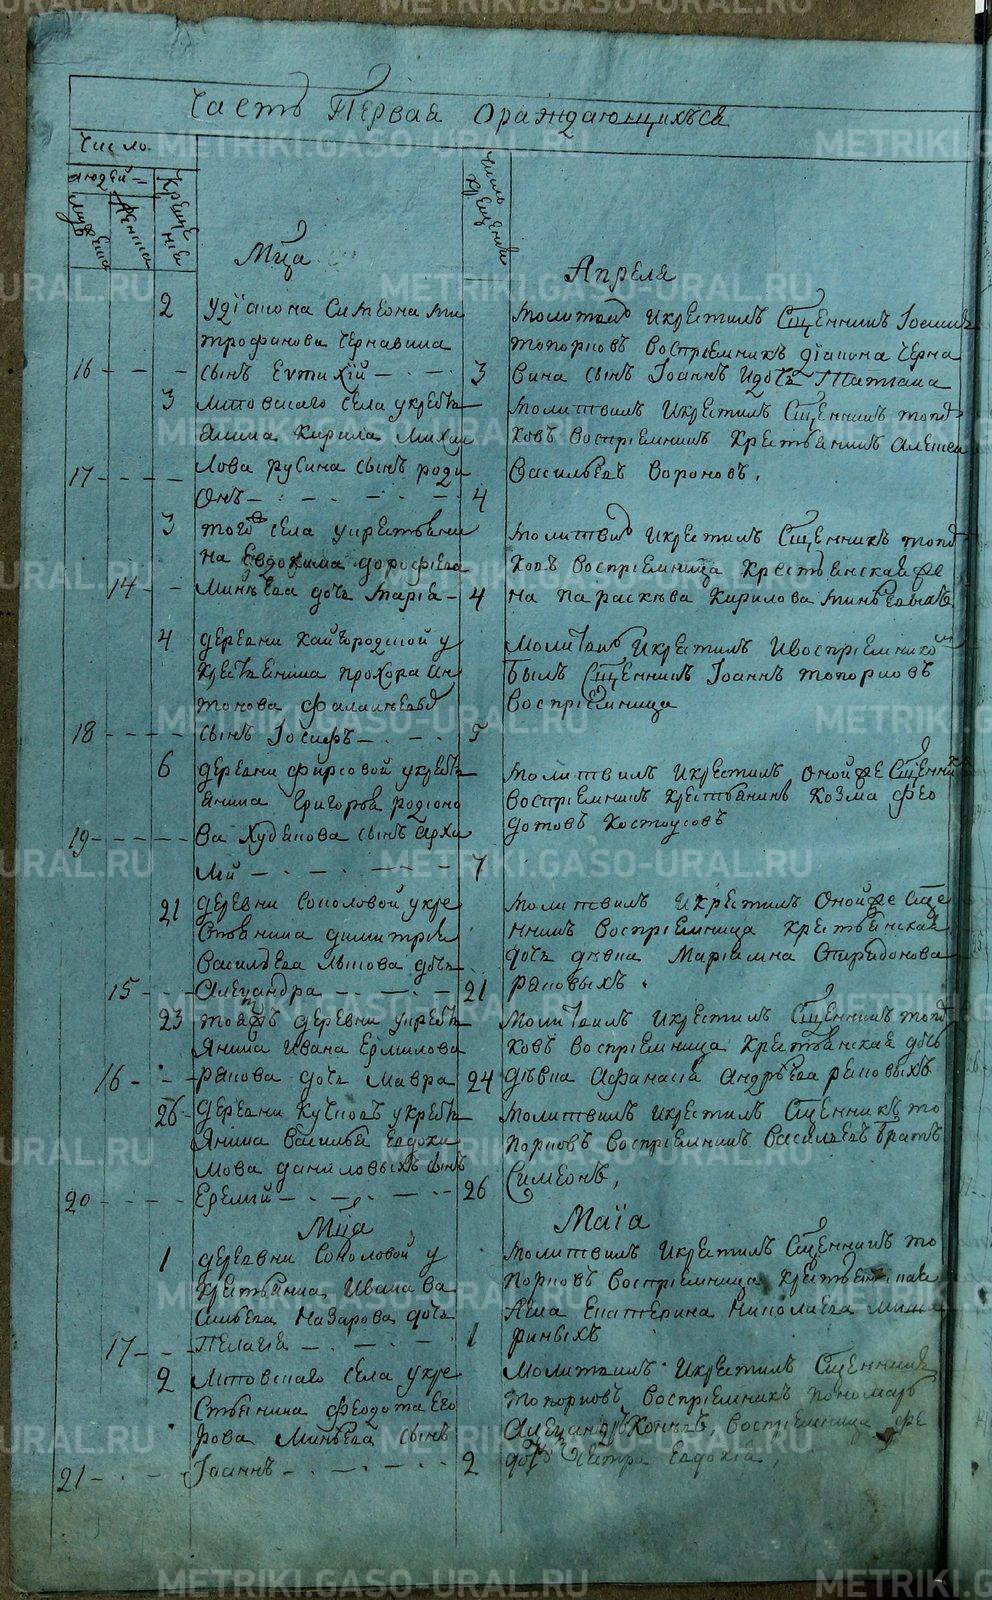 Часть Первая ораждающихся
Число
людей
мужеска
женска
Крещение
Число крещения
Мца
Апреля
2 удїакона Симеона ми
трофанова Чернавина
16 - - - сынъ Евтихїй - - - 3
молитвилъ икрестилъ Сщенникъ Іоаннъ
топорковъ воспрїемникъ дїакона Черна
вина сынъ Іоаннъ идочь Татїана
3 Литовскаго села укресть
янина Кирила Михаи
17 - - - - лова русина сынъ роди
онъ - - - - 4
молитвилъ икрестилъ Сщенникъ топор
ковъ воспрїемникъ крестьянинъ Алексей
Васильевъ Вороновъ.
3 того села укрестьяни
на Евдокима дорофеева
14 - - Минѣева дочь Марїя - 4
молитвилъ икрестилъ Сщенникъ топор
ковъ воспрїемница крестьянская же
на параскѣва Кирилова минѣевыхъ
4 деревни кайгородской у
крестьянина прохора ан
тонова фалалѣева
18 - - - - сынъ Іосифъ - - - 5
молитвилъ икрестилъ ивоспрїемникомъ
былъ Сщенникъ Іоаннъ топорковъ
воспрїемница
6 деревни фирсовой укресть
янина григорья родїоно
19 - - - - ва Худякова сынъ архи
пїй - - - - 7
молитвилъ икрестилъ онойже Сщенникъ
воспрїемникъ крестьянинъ Козма фео
дотовъ Костоусовъ
21 деревни Соколовой укре
стьянина димитрїя
Васильева лыкова дочь
15 - - - Александра - - - - 21
молитвилъ икрестилъ онойже Сще
нникъ воспрїемница крестьянская
дочь дѣвка Марїамна Спиридонова
раковыхъ.
23 тояжъ деревни укресть
янина Ивана Ермилова
16 - - - ракова дочь Мавра 24
молитвилъ икрестилъ Сщенникъ топор
ковъ воспрїемница крестьянская дочь
дѣвка Афанасїя Андрѣева раковыхъ
26 деревни Кучковъ укресть
янина Василья Евдоки
мова даниловыхъ сынъ
20 - - - - Еремїй - - - - 26
молитвилъ икрестилъ Сщенникъ то
порковъ воспрїемникъ Васильевъ братъ
Симеонъ,
Мца
Маїа
1 деревни Соколовой у
крестьянина Ивана ва
сильева Назарова дочь
17 - - - Пелагїя - - - 1
молитвилъ икрестилъ Сщенникъ то
порковъ воспрїемница крестьянская
жена Екатерина Николаева
риныхъ
2 Литовскаго села укре
стьянина феодота его
рова Минѣева сынъ
21 - - - Іоаннъ - - - - 2
молитвилъ икрестилъ Сщенникъ
топорковъ воспрїемникъ пономарь
Александръ Коневъ, воспрїемница же
сестра Евдокїя,